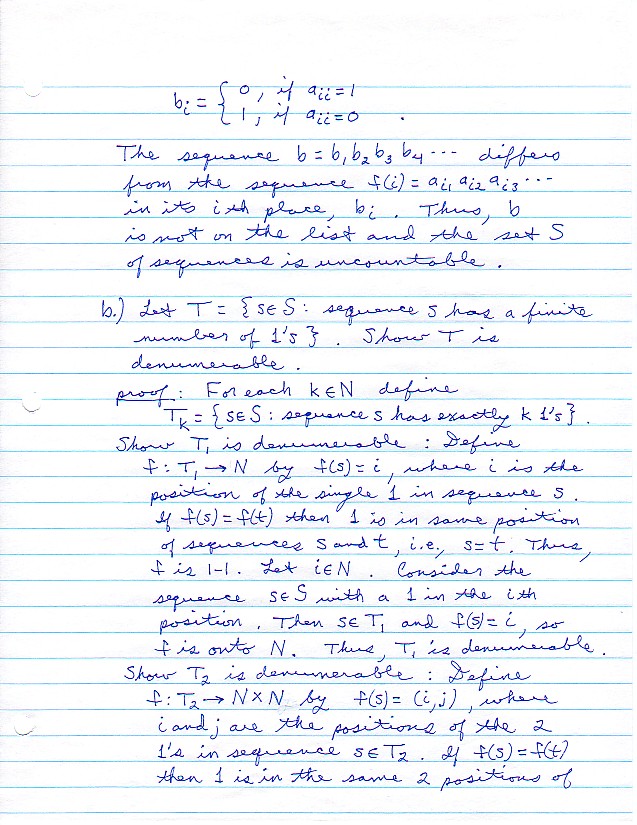 bᵢ = { 0, if aᵢᵢ=1
1, if aᵢᵢ=0 .
The sequence b = b₁b₂b₃b₄ ··· differs
from the sequence f(i) = aᵢ₁aᵢ₂aᵢ₃···
in its ith place, bᵢ. Thus, b
is not on the list and the set S
of sequences is uncountable.
b.) Let T = {s∈S: sequence s has a finite
number of 1's}. Show T is
denumerable.
proof: For each k∈N define
Tₖ = {s∈S: sequence s has exactly k 1's}.
Show T₁ is denumerable: Define
f: T₁ → N by f(s) = i, where i is the
position of the single 1 in sequence s.
If f(s) = f(t) then 1 is in same position
of sequences s and t, i.e., s=t. Thus,
f is 1-1. Let i∈N. Consider the
sequence s∈S with a 1 in the ith
position. Then s∈T₁ and f(s) = i, so
f is onto N. Thus, T₁ is denumerable.
Show T₂ is denumerable: Define
f: T₂ → N×N by f(s) = (i,j), where
i and j are the positions of the 2
1's in sequence s∈T₂. If f(s) = f(t)
then 1 is in the same 2 positions of